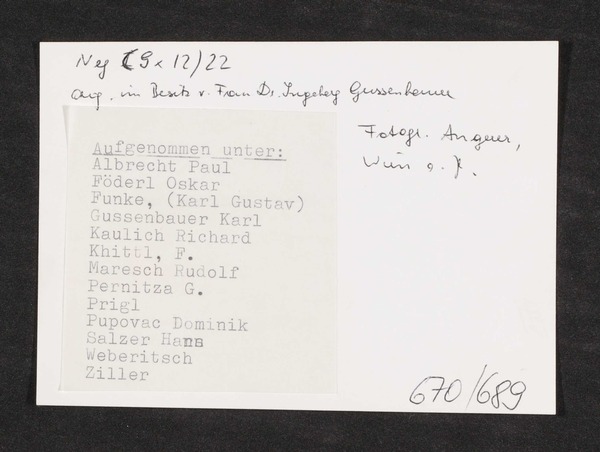 Neg (9 x 12)/22
Orig. im Besitz v. Frau Dr. Ingeborg Gussenbauer
Fotogr. Angerer,
Wien o. J.
Aufgenommen unter:
Albrecht Paul
Föderl Oskar
Funke, (Karl Gustav)
Gussenbauer Karl
Kaulich Richard
Khittl, F.
Maresch Rudolf
Pernitza G.
Prigl
Pupovac Dominik
Salzer Hans
Weberitsch
Ziller
670/689